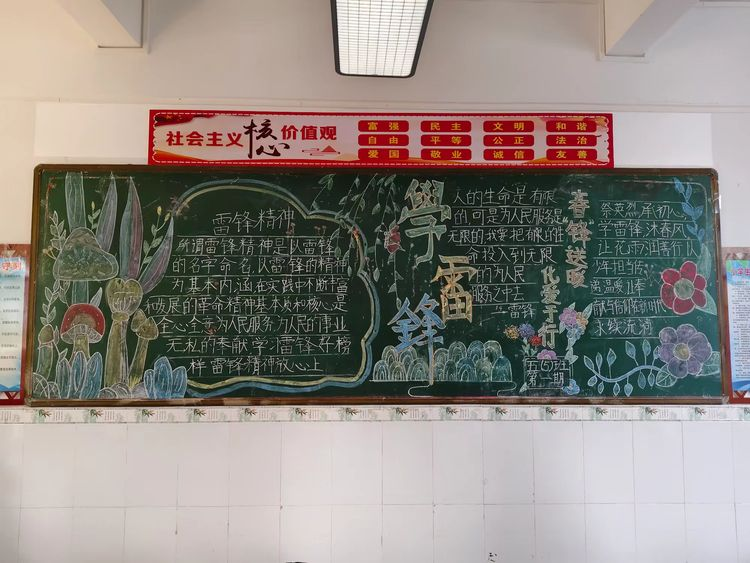 社会主义核心价值观
富强 民主 文明 和谐
自由 平等 公正 法治
爱国 敬业 诚信 友善
雷锋精神
所谓雷锋精神是以雷锋
的名字命名,以雷锋的精神
为基本内涵在实践中不断丰富
和发展的革命精神基本质和核心是
全心全意为人民服务为人民的事业
无私的奉献学习雷锋好榜
样雷锋精神放心上
學雷鋒
人的生命是有限
的可是为人民服务是
无限的我要把有限的生
命投入到无限
的为人民
服务之中去
雷锋
春"锋"送暖
化爱于行
五四班
第一期
祭英烈承初心
学雷锋沐春风
让花雨润善行